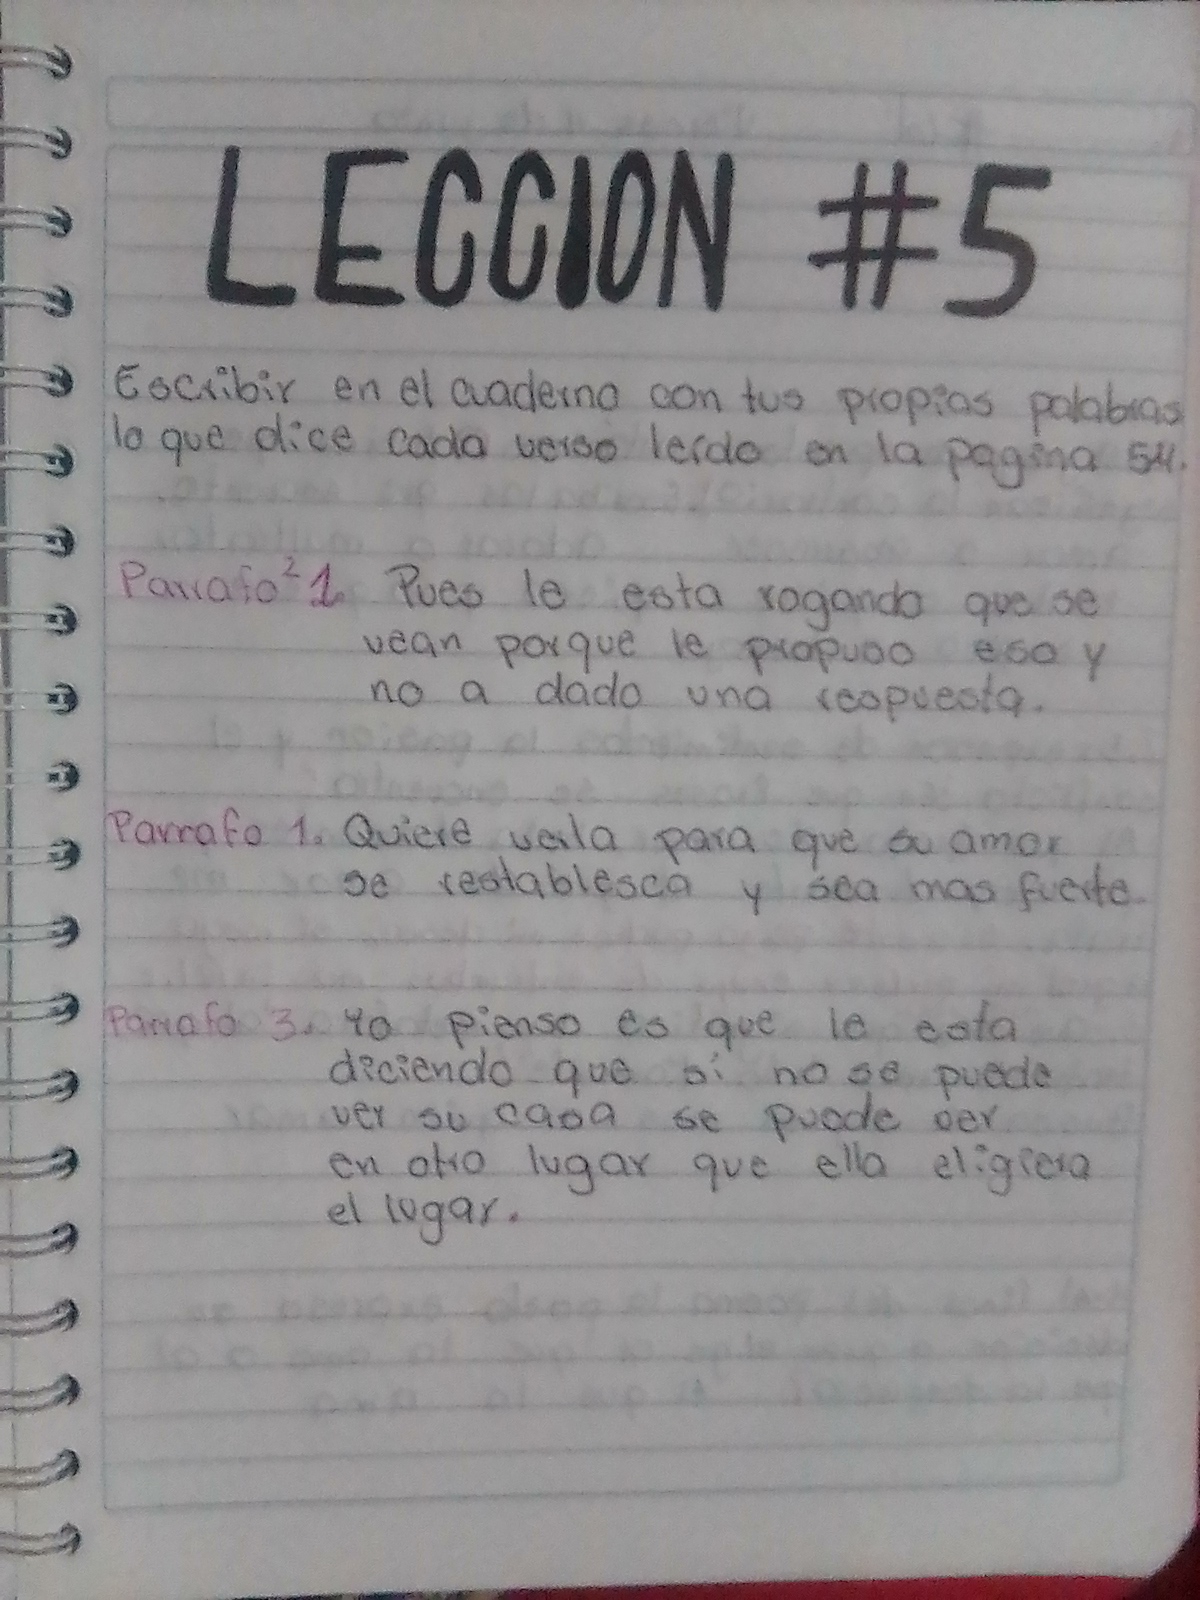 LECCION #5
Escribir en el cuaderno con tus propias palabras
lo que dice cada verso leído en la pagina 54.
Parrafo 2 1. Pues le esta rogando que se
vean porque le propuso eso y
no a dado una respuesta.
Parrafo 1. Quiere verla para que su amor
se restablesca y sea mas fuerte.
Parrafo 3. Yo pienso es que le esta
diciendo que si no se puede
ver su casa se puede ver
en otro lugar que ella eligiera
el lugar.